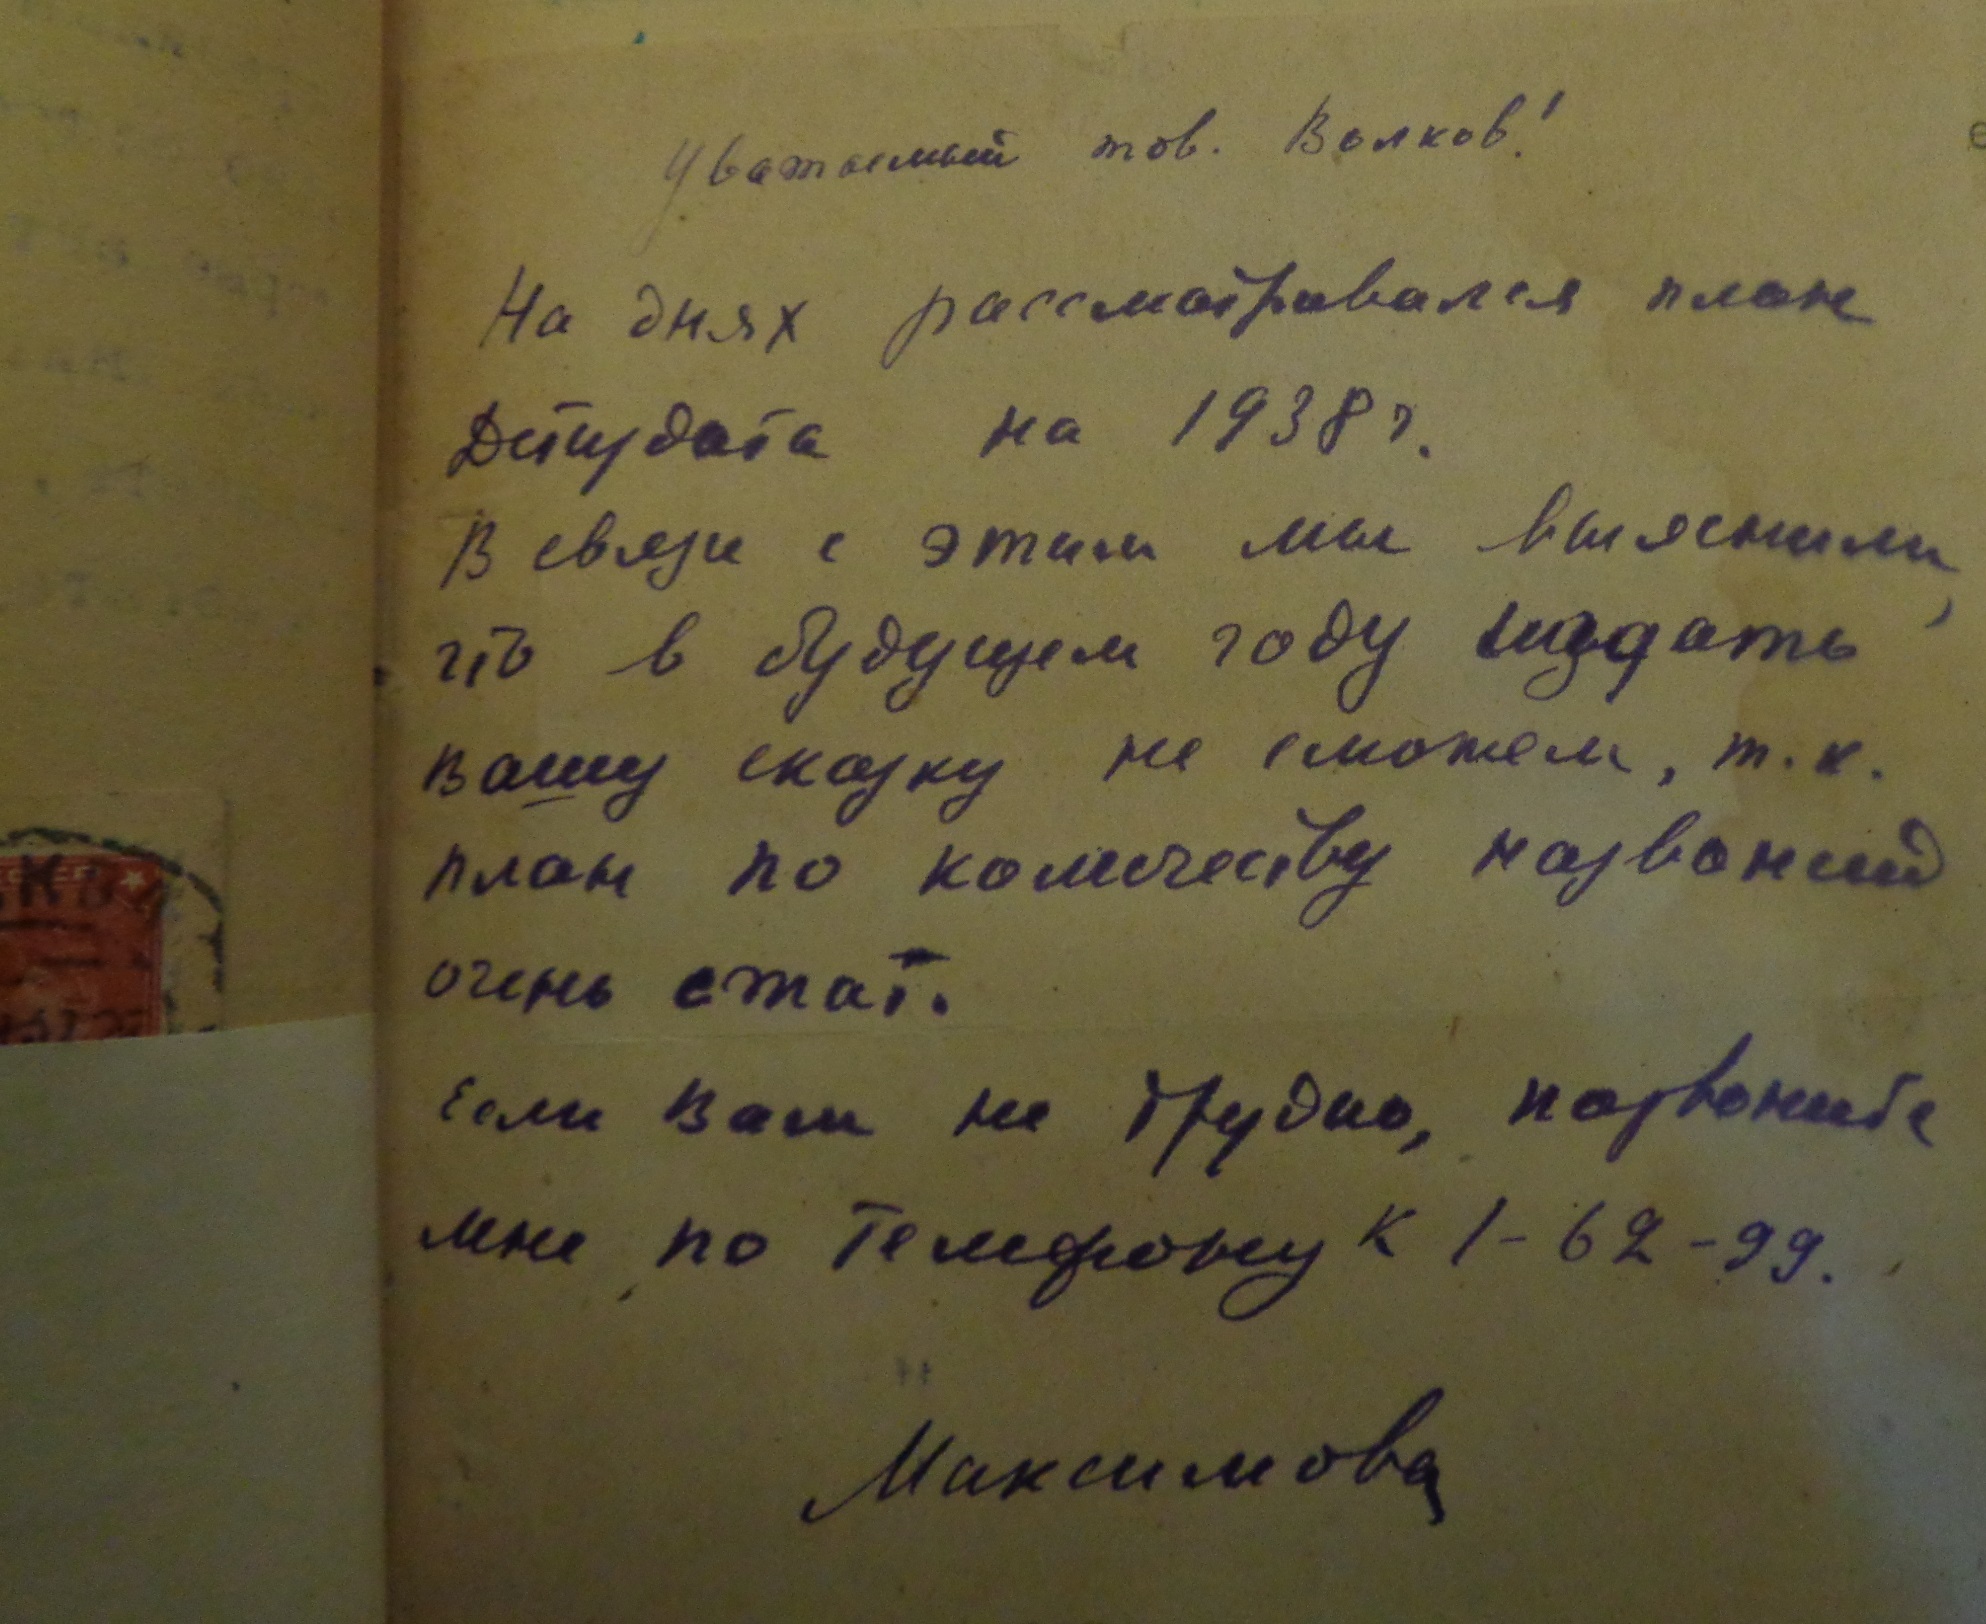 Уважаемый тов. Волков!
На днях рассматривался план
Детиздата на 1938 г.
В связи с этим мы выяснили,
что в будущем году издать
Вашу сказку не сможем, т.к.
план по количеству названий
очень сжат.
Если Вам не трудно, позвоните
мне по телефону К 1-62-99.
Максимова